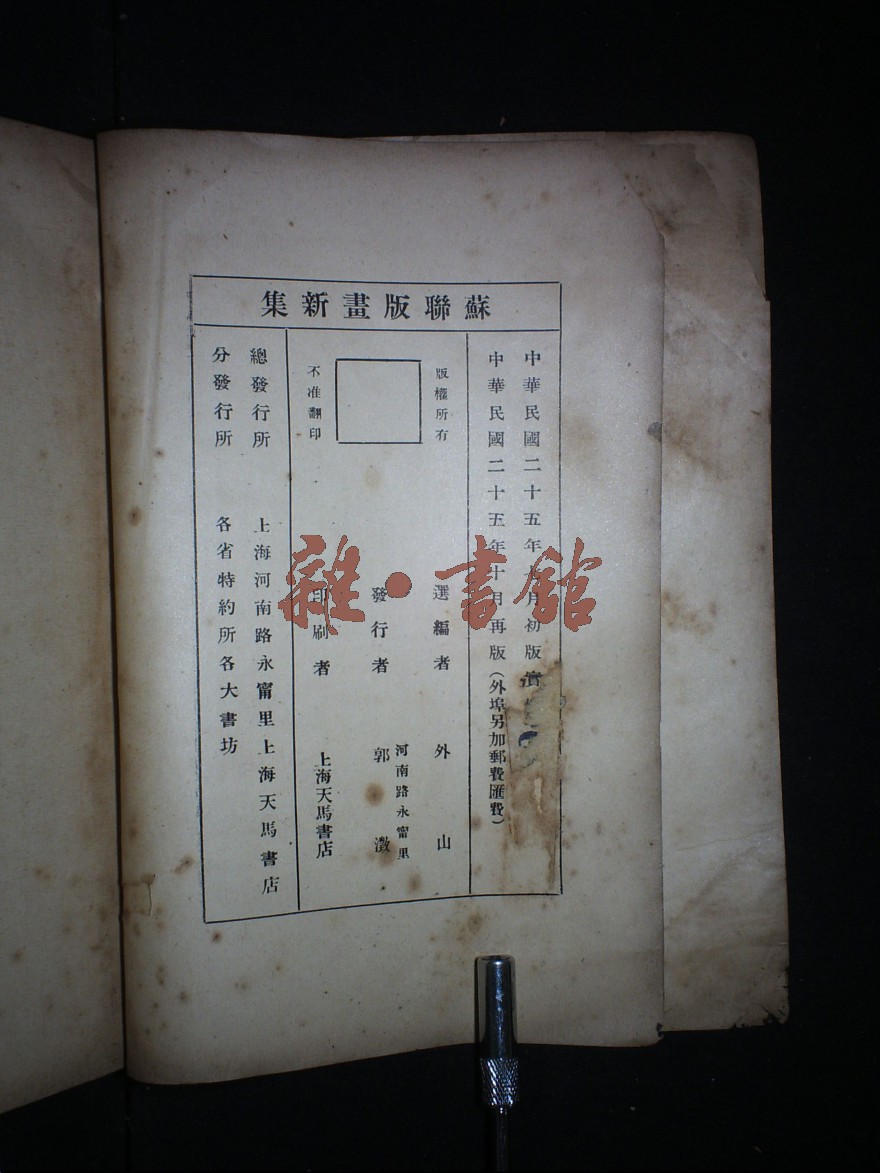 蘇聯版畫新集
中華民國二十五年 月初版 實
中華民國二十五年十月再版(外埠另加郵費匯費)
版權所有
不准翻印
選編者 外山
發行者 河南路永甯里 郭澂
印刷者 上海天馬書店
總發行所 上海河南路永甯里上海天馬書店
分發行所 各省特約所各大書坊
雜·書館